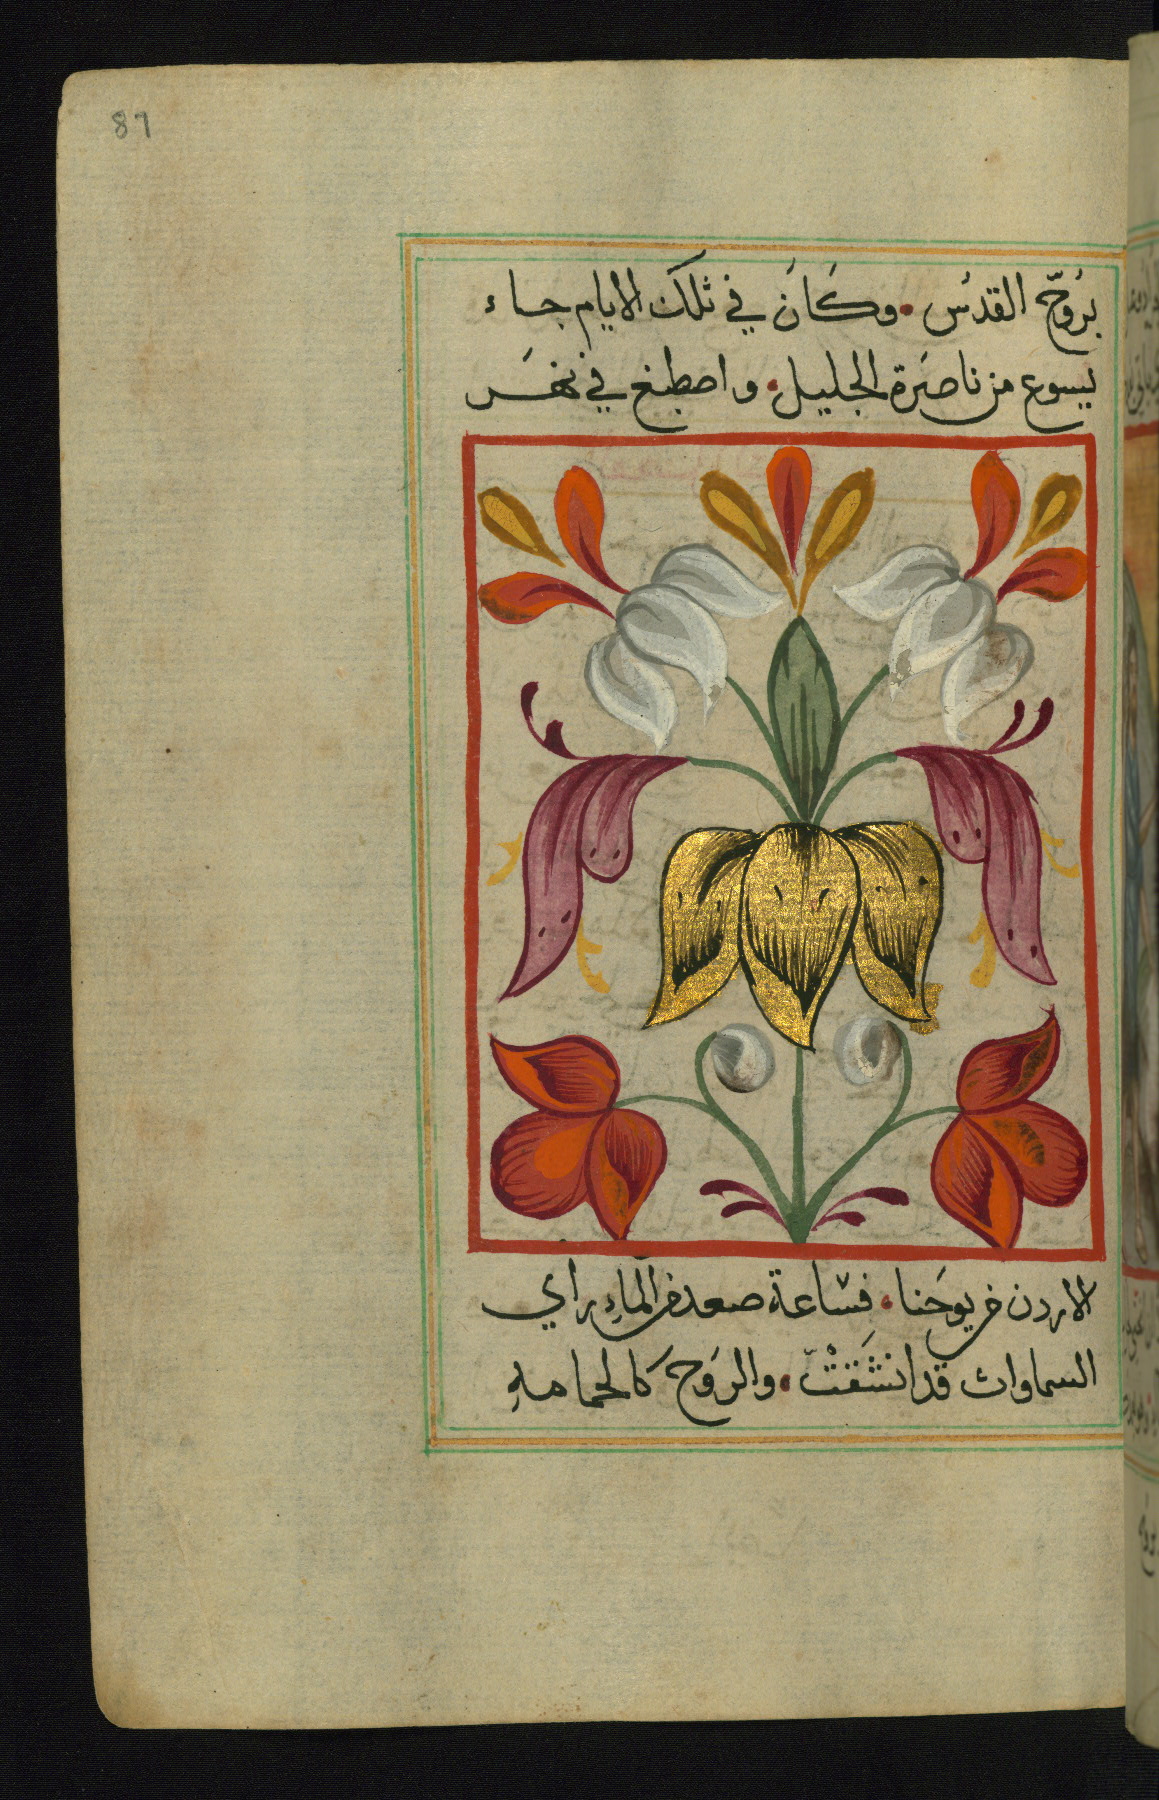 87
بِرُوحّ القدسُ • وكَانَ في تلكَ الايام جاء
يسوع من ناصَرة الجليل • واصطبغ في نهَر
الاردن من يوحَنا • فسَاعة صعد من الماءِ راي
السماوات قد انشَقتْ • والرَوح كالحمامهِ